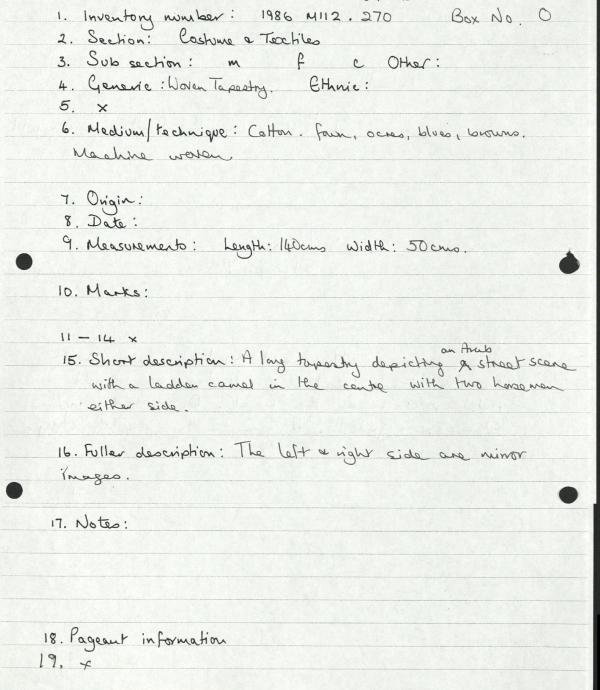 1. Inventory number: 1986 M112.270 Box No. O
2. Section: Costume & Textiles
3. Sub section: m f c Other:
4. Generic: Woven Tapestry. Ethnic:
5. x
6. Medium/technique: Cotton. fawn, ocres, blues, browns.
Machine woven.
7. Origin:
8. Date:
9. Measurements: Length: 140cms Width: 50cms.
10. Marks:
11 - 14 x
an Arab
15. Short description: A long tapestry depicting street scene
with a ladden camel in the centre with two horsemen
either side.
16. Fuller description: The left & right side are mirror
images.
17. Notes:
18. Pageant information
19. x